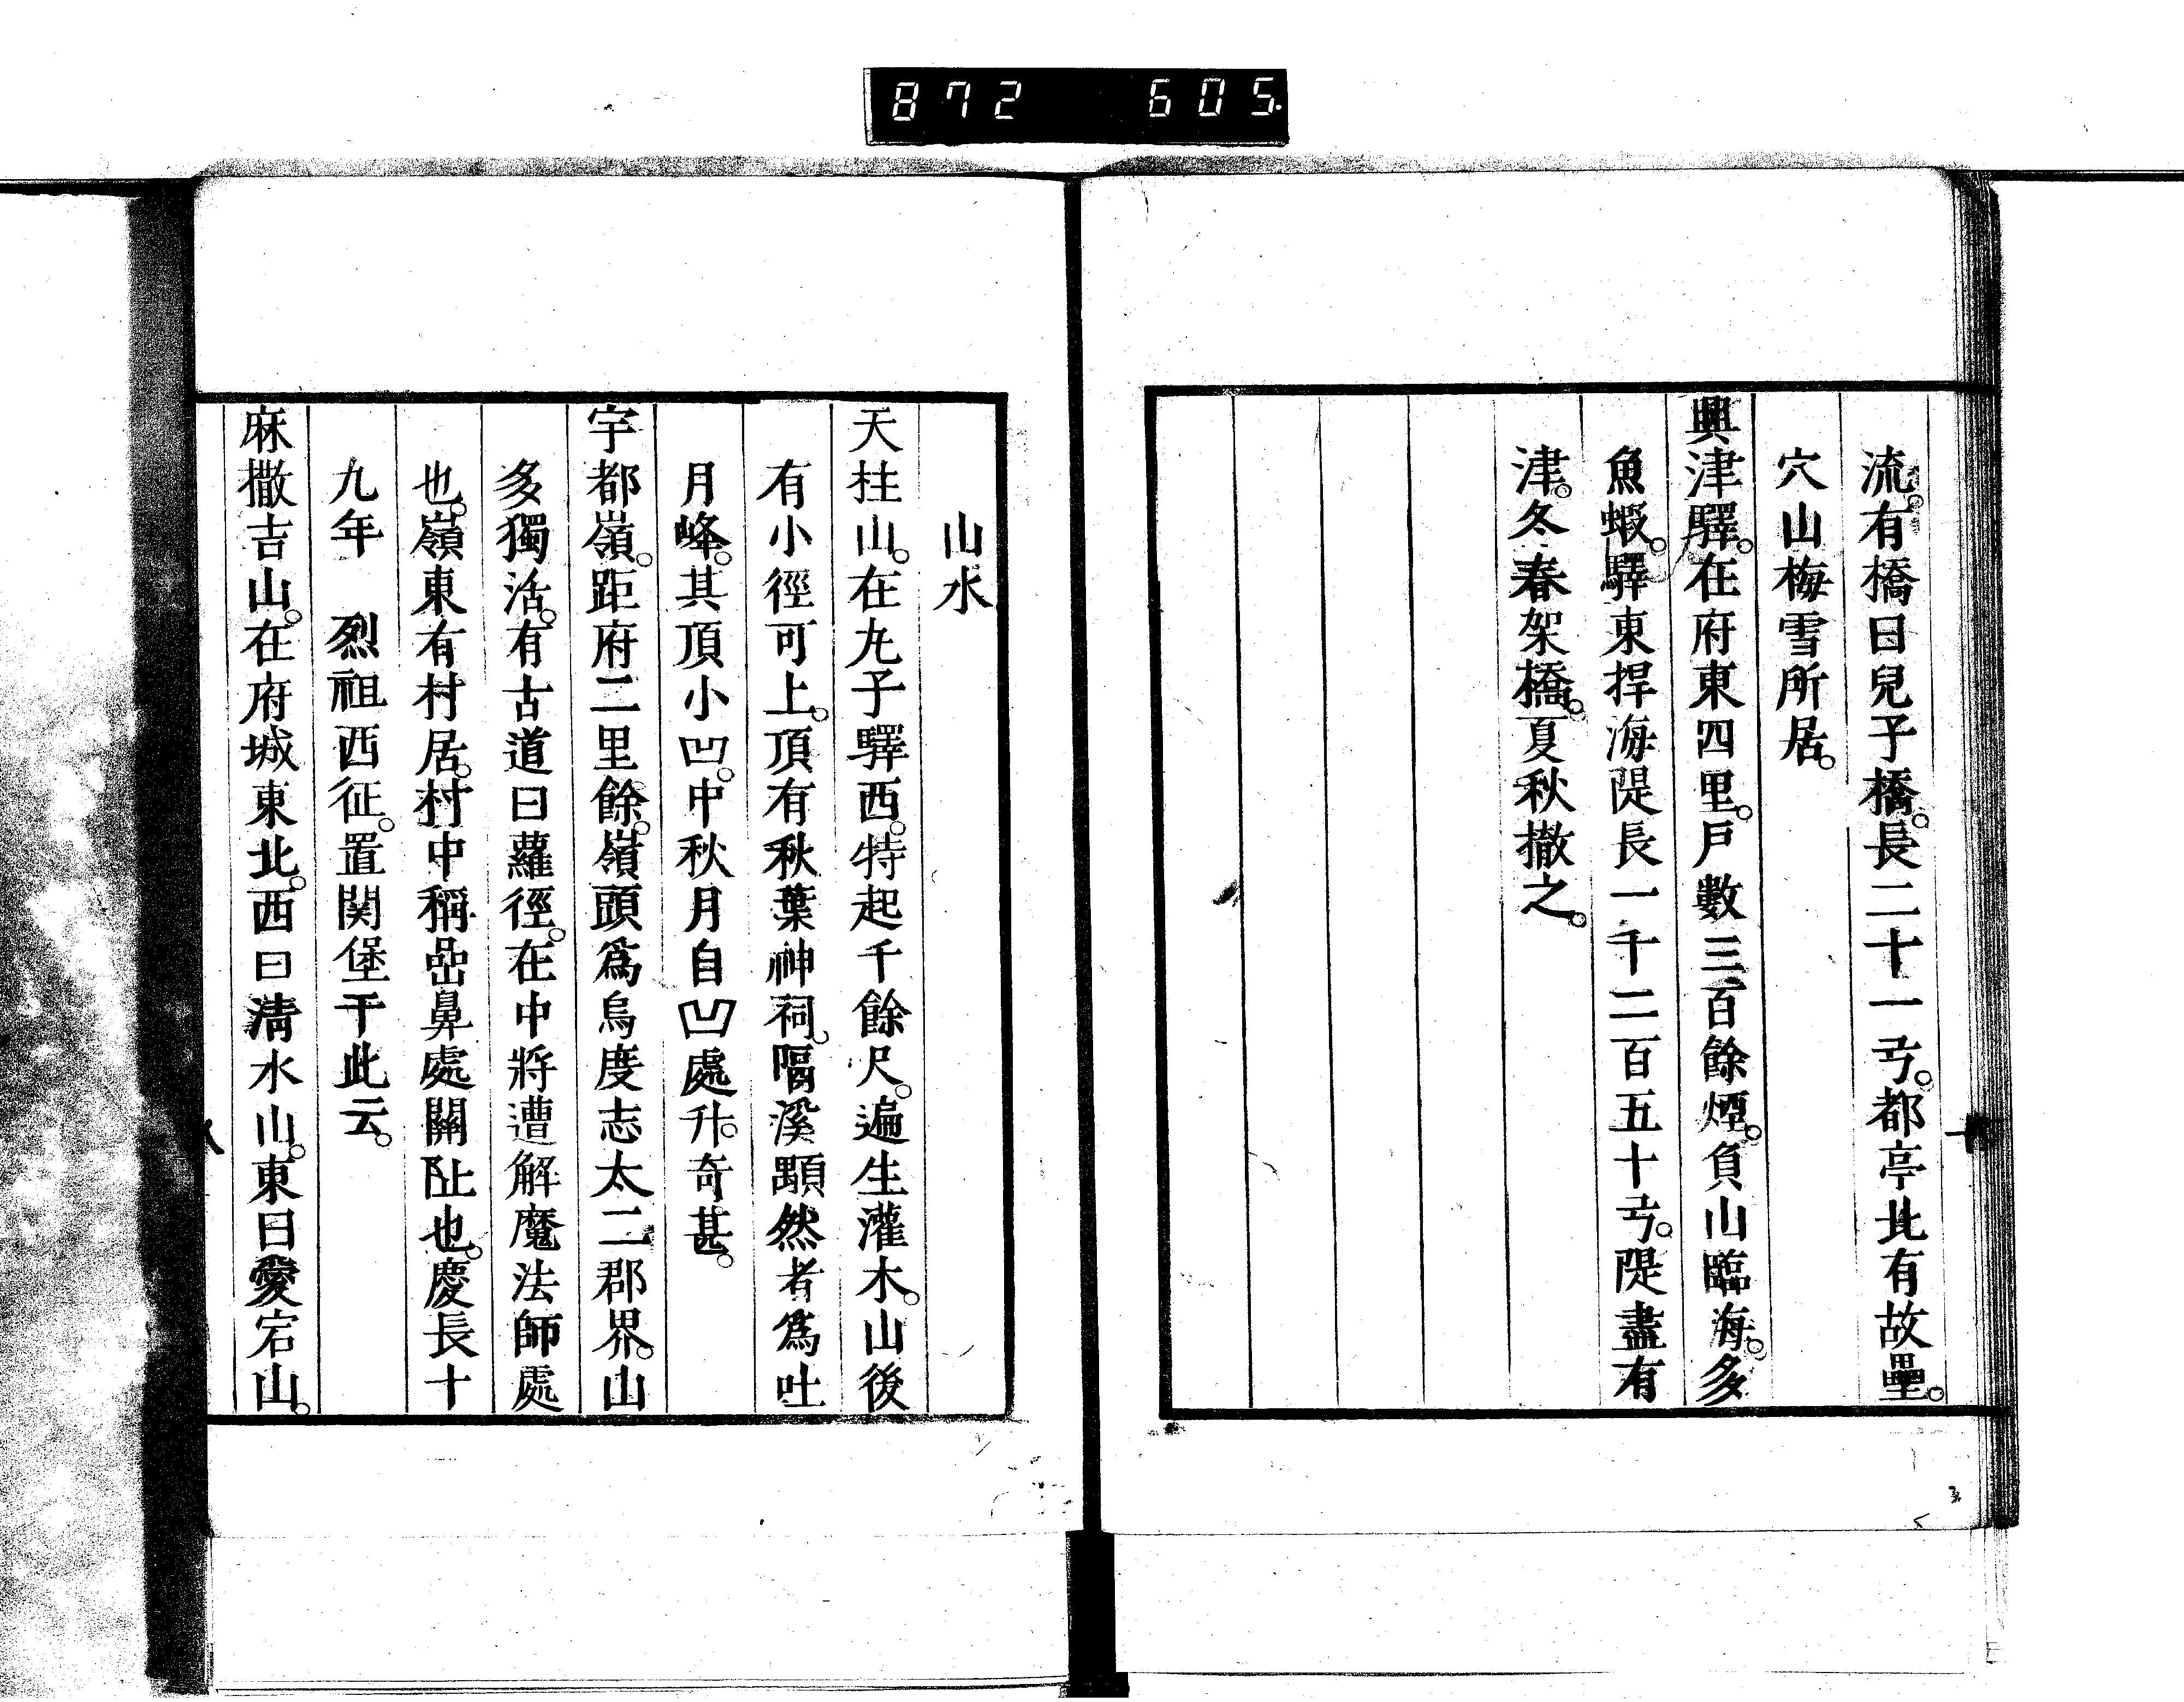 872 605
流。有橋曰兒子橋。長二十一弓。都亭北有故壘。
穴山梅雪所居。
興津驛。在府東四里。戸數三百餘煙。負山臨海。多
魚蝦。驛東捍海隄長一千二百五十弓。隄盡有
津。冬春架橋。夏秋撤之。
山水
天柱山。在丸子驛西。特起千餘尺。遍生灌木。山後
有小徑可上。頂有秋葉神祠。隔溪顕然者爲吐
月峰。其頂小凹。中秋月自凹處升。奇甚。
宇都嶺。距府二里餘。嶺頭爲烏度志太二郡界。山
多獨活。有古道曰蘿徑。在中將遭解魔法師處
也。嶺東有村居。村中稱嵒鼻處關阯也。慶長十
九年 烈祖西征。置関堡于此云。
麻撒吉山。在府城東北。西曰淸水山。東曰愛宕山。